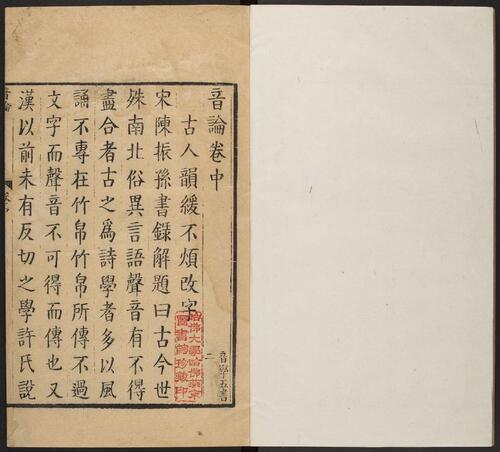 音論卷中
古人韻緩不煩改字
宋陳振孫書錄解題曰古今世
殊南北俗異言語聲音有不得
盡合者古之爲詩學者多以風
誦不專在竹帛竹帛所傳不過
文字而聲音不可得而傳也又
漢以前未有反切之學許氏說
音論
二
音學五書
哈佛大學哈佛燕京
圖書館珍藏印